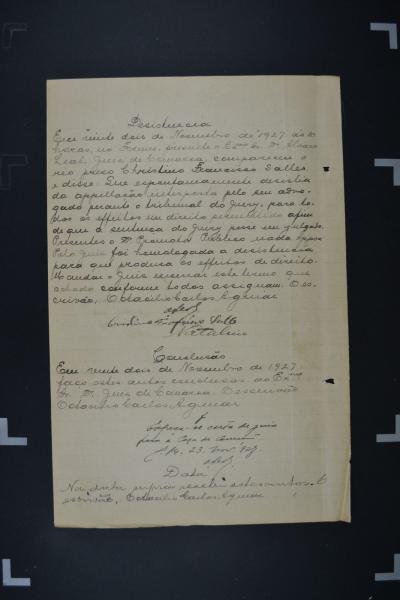 Desistencia
Em vinte dois de Novembro de 1927 ás
horas, no Forum, presente o Exmo Sr. Dr. Alvaro
Leal, Juiz de Comarca, compareceu o
reo preso Christino Francisco Salles
e disse: Que espontaneamente desistia
da appellação interposta pelo seu advo-
gado perante o tribunal do Jury, para to-
dos os effeitos em direito afim
de que a sentença do Jury passe em julgado.
Presente o Dr Promotor Publico nada oppoz.
Pelo Juiz foi homologada a desistencia
para que produza os effeitos de direito.
Mandou o Juiz encerrar este termo que
achado conforme todos assignam. O es-
crivão, Octacilio Carlos Aguiar
Conclusão
Em vinte dois de Novembro de 1927
faço estes autos conclusos ao Exmo
Sr. Dr. Juiz de Comarca. O escrivão
Octacilio Carlos Aguiar
-se carta de guia
para a Casa de
23 Nov. 927
Data
Na data supra recebi estes autos. O
escrivão, Octacilio Carlos Aguiar